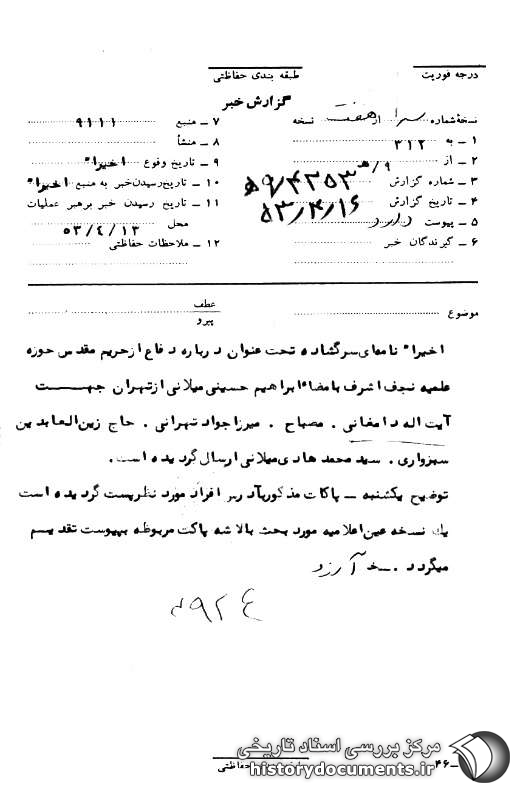 درجه فوریت
طبقه بندی حفاظتی
گزارش خبر
نسخهٔ شماره ... از هفت نسخه
۱ ـ به ۳۱۲
۲ ـ از ۹/هـ
۳ ـ شماره گزارش ۵۹/۴۲۵۳
۴ ـ تاریخ گزارش ۵۳/۴/۱۶
۵ ـ پیوست دارد
۶ ـ گیرندگان خبر
۷ ـ منبع ۹۱۱۱
۸ ـ منشأ
۹ ـ تاریخ وقوع اخیراً
۱۰ ـ تاریخ رسیدن خبر به منبع اخیراً
۱۱ ـ تاریخ رسیدن خبر برهبر عملیات
محل ۵۳/٤/۱۳
۱۲ ـ ملاحظات حفاظتی
موضوع
عطف
پیرو
اخیراً نامهای سرگشاده تحت عنوان درباره دفاع از حریم مقدس حوزه
علمیه نجف اشرف بامضاء ابراهیم حسینی میلانی از تهران جهت
آیت اله دامغانی . مصباح . میرزاجواد تهرانی . حاج زین العابدین
سبزواری . سید محمد هادی میلانی ارسال گردیده است .
توضیح یکشنبه ـ پاکات مذکور بآدرس افراد مورد نظر پست گردیده است
یك نسخه عین اعلامیه مورد بحث بالا شه پاکت مربوطه بپیوست تقدیم
میگردد .
۳۹۲٤
ـ۴۶
حفاظتی
مرکز بررسی اسناد تاریخی
historydocuments.ir